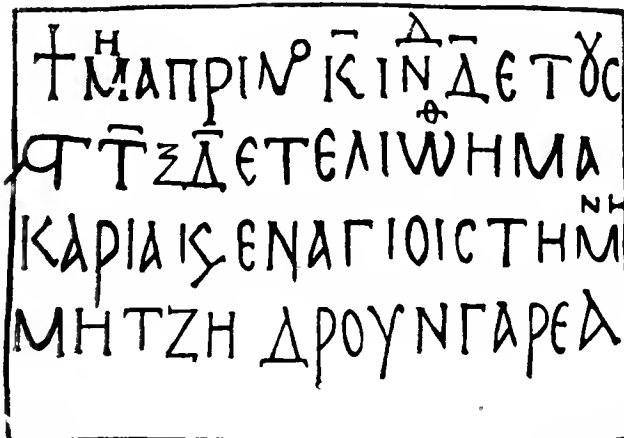 † ΜΗ ΑΠΡΙΝΟ Κ̅ ΙΝΔ Δ̅ ΕΤȢC
͵Ϛ Τ̅ΞΔ̅ ΕΤΕΛΙѠΘΗΜΑ
ΚΑΡΙΑΙϚ ΕΝ ΑΓΙΟΙC ΤΗΜΝΗ
ΜΗΤΖΗ ΔΡΟΥΝΓΑΡΕΑ